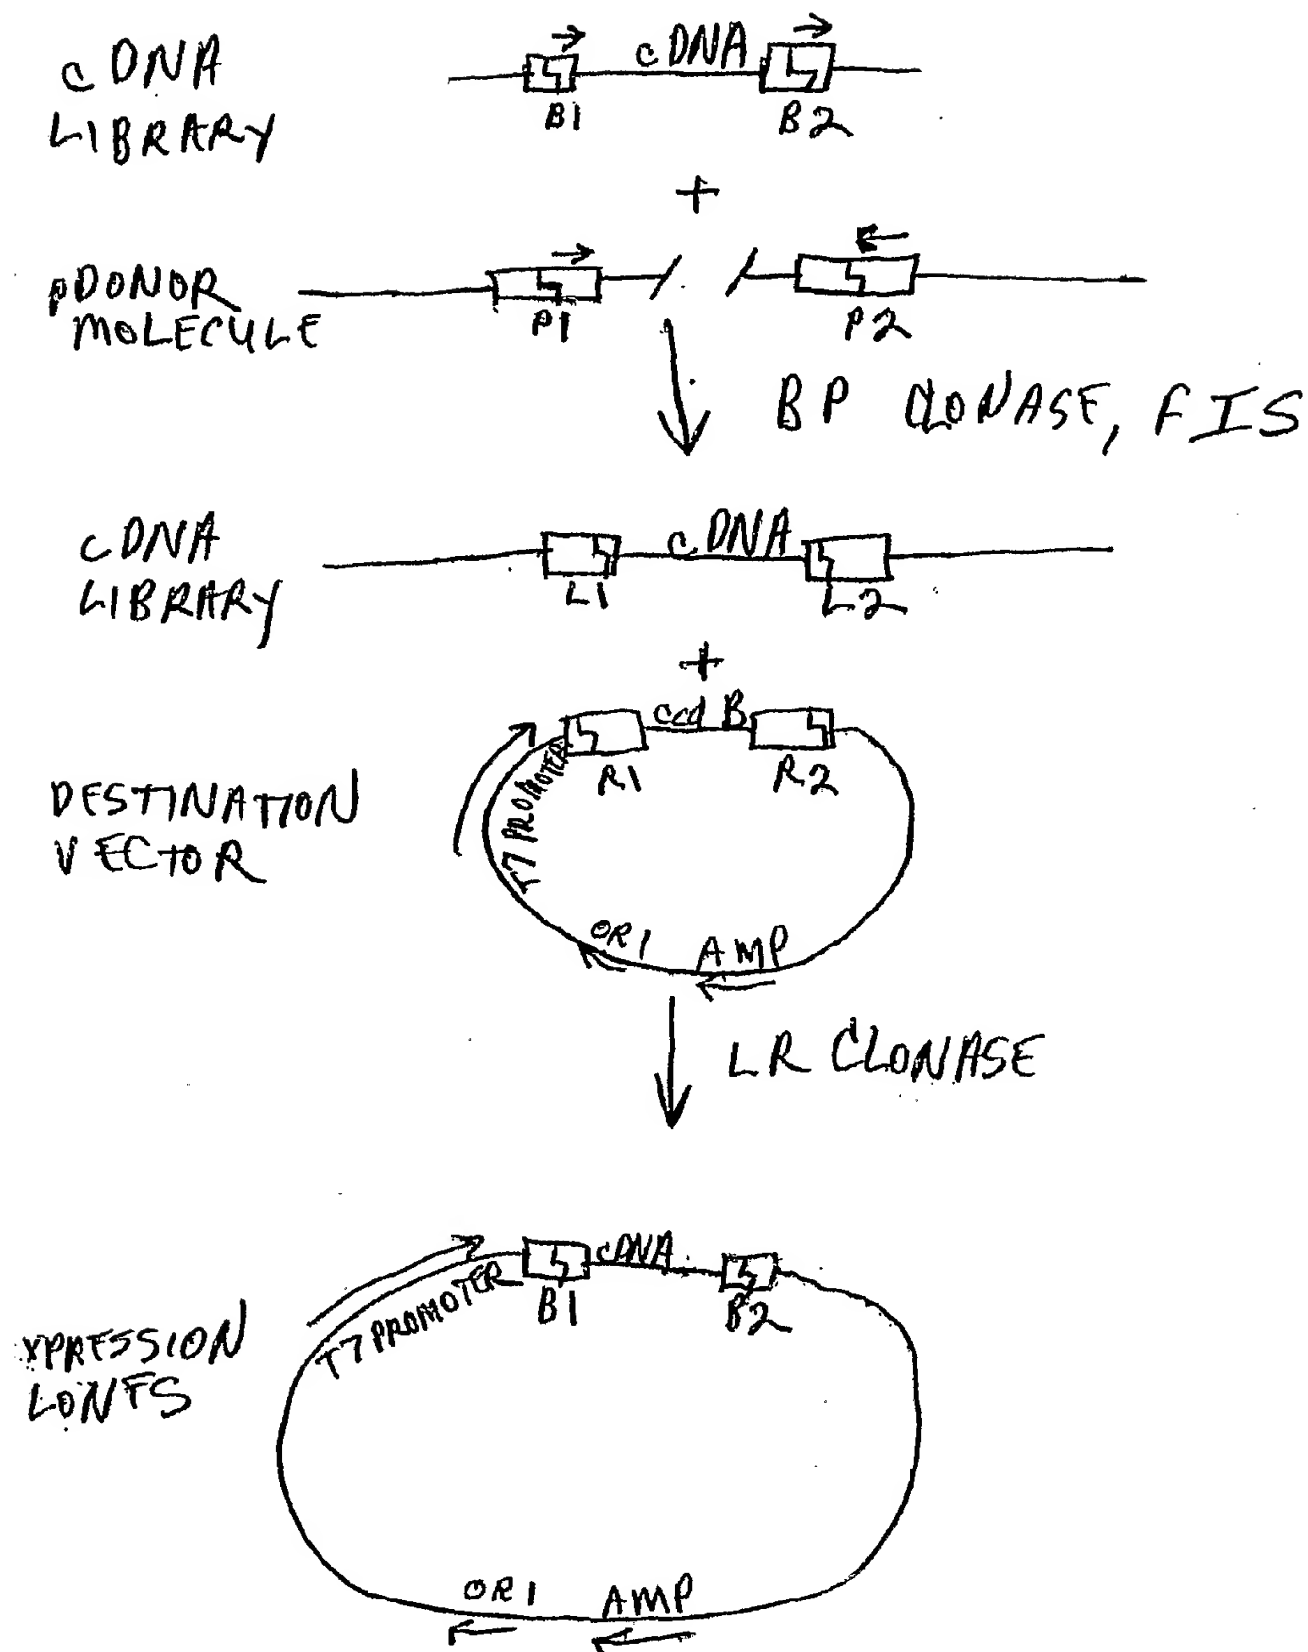 cDNA
LIBRARY
cDNA
B1
B2
+
pDONOR
MOLECULE
P1
P2
BP CLONASE, FIS
cDNA
LIBRARY
cDNA
L1
L2
+
DESTINATION
VECTOR
ccd B
R1
R2
T7 PROMOTER
ORI
AMP
LR CLONASE
XPRESSION
LONES
T7 PROMOTER
B1
cDNA
B2
ORI
AMP